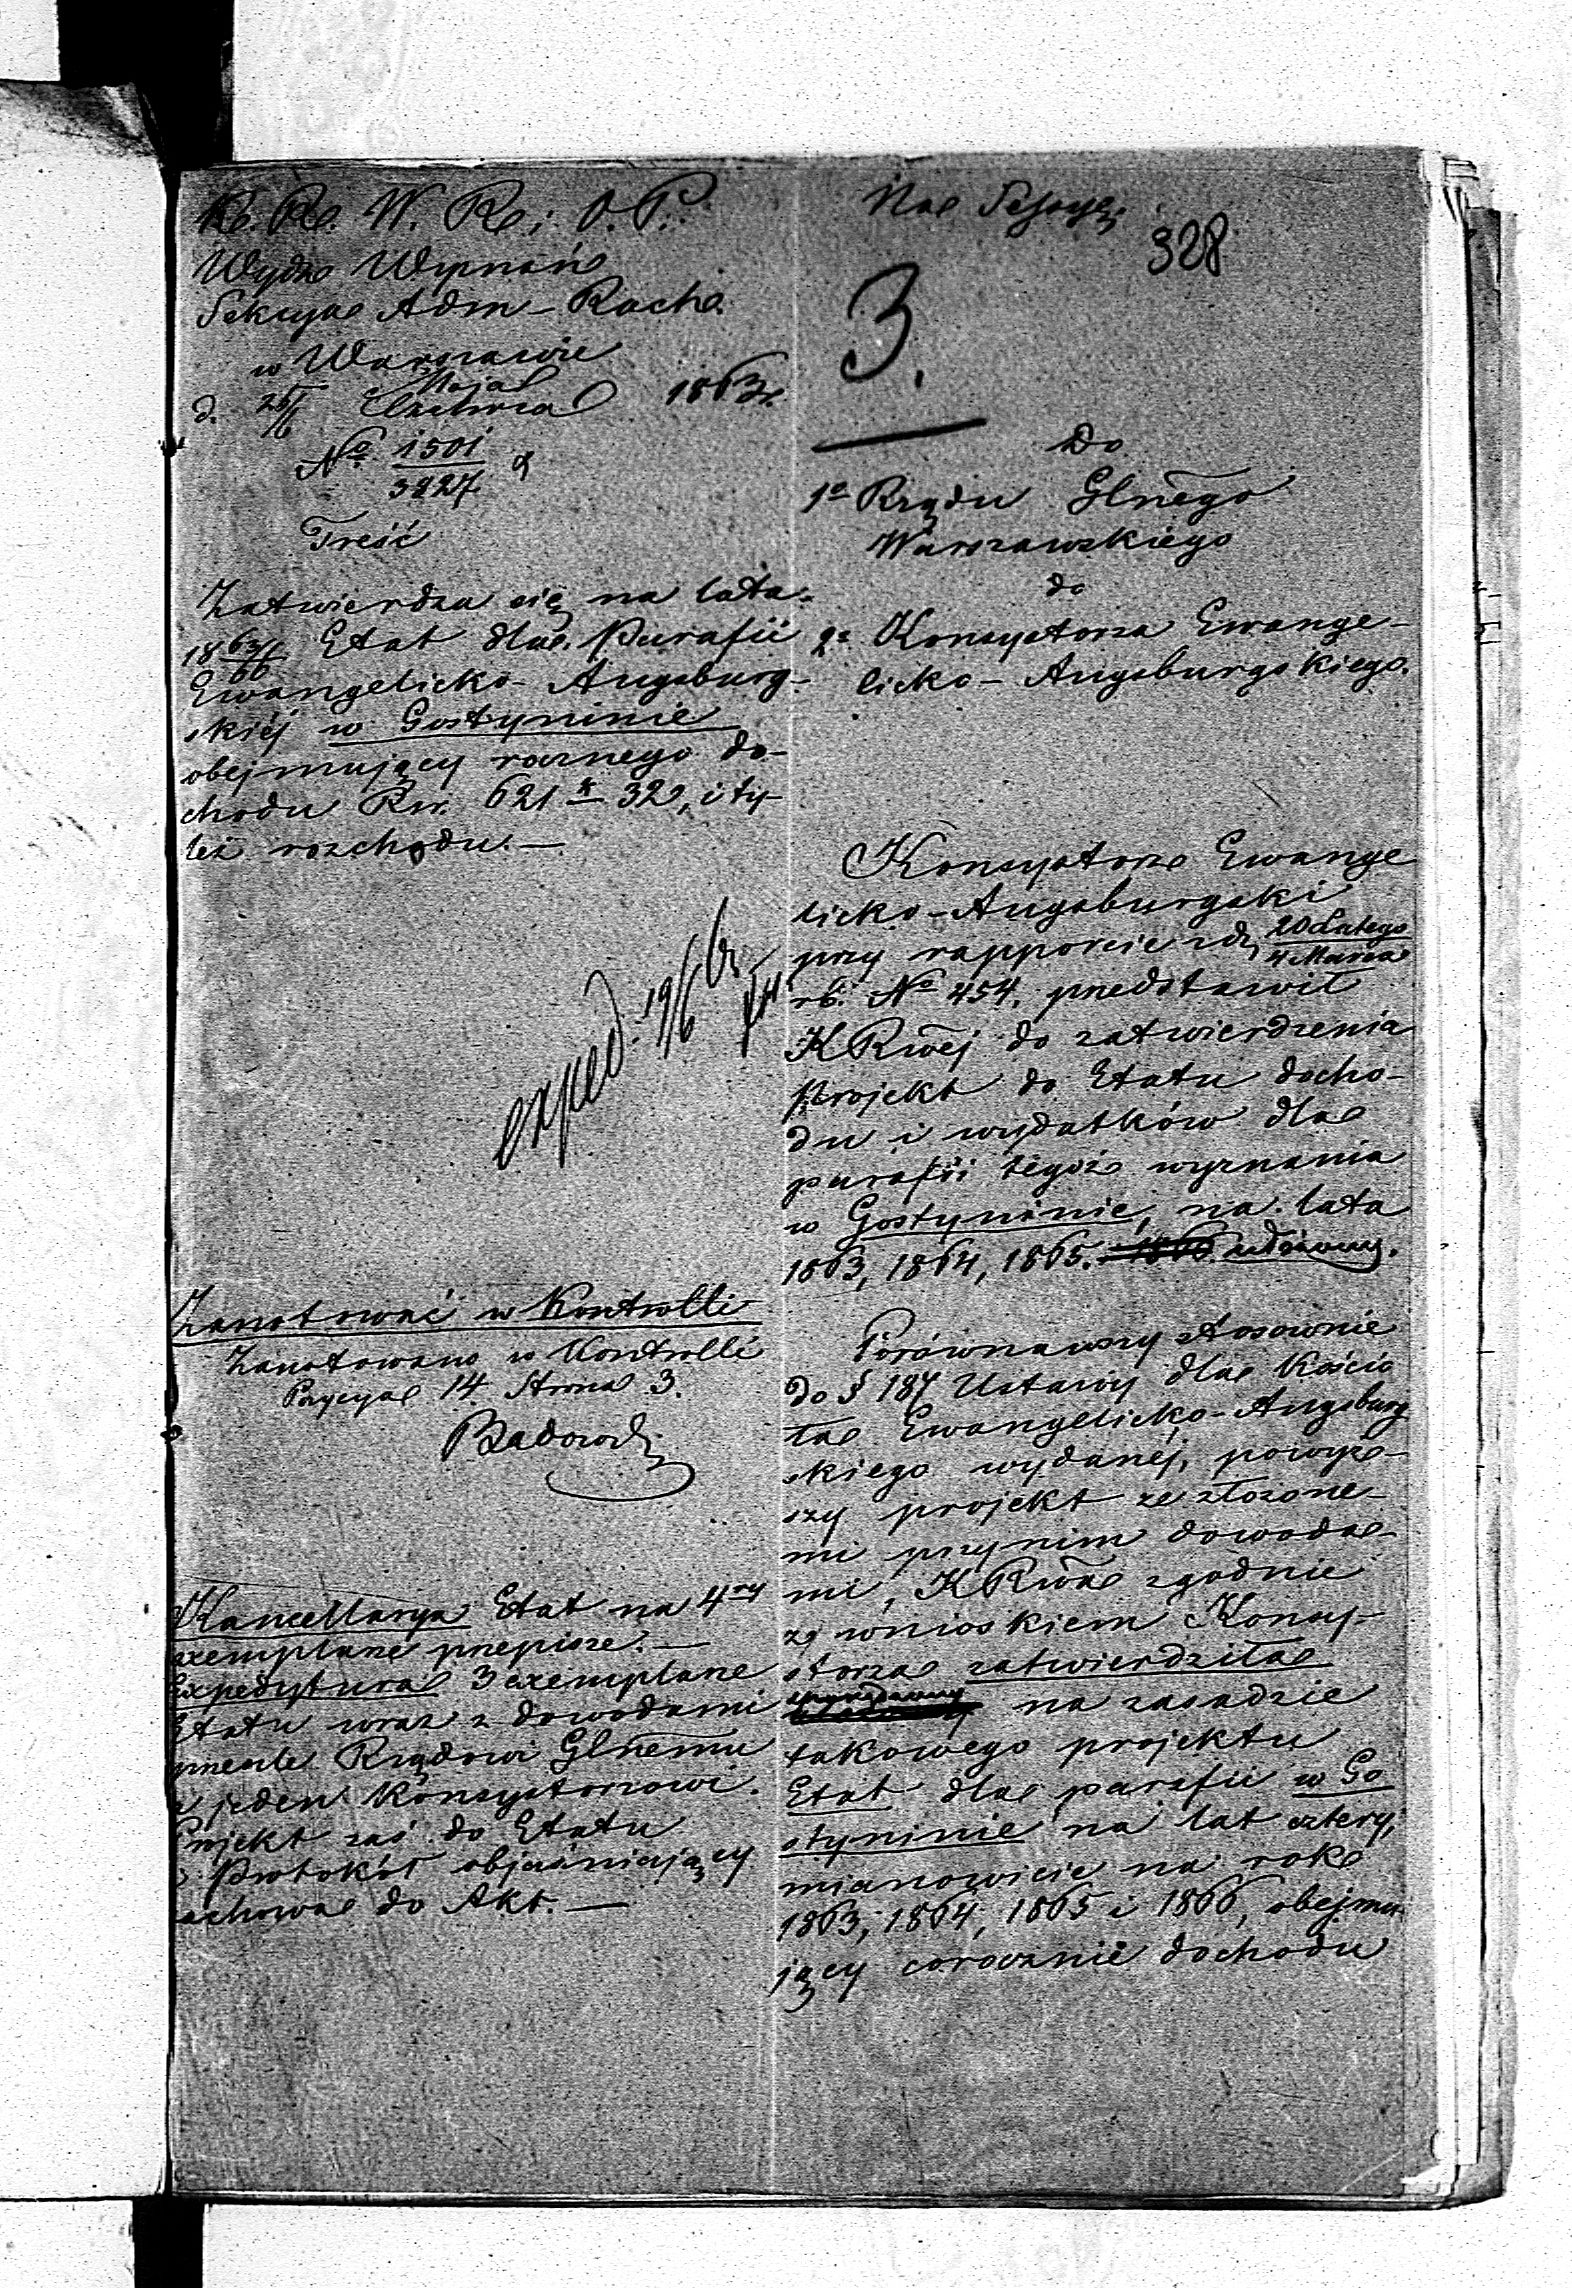 K. R. W. R. i O. P.
Wydz Wyznań
Sekcya Adm-Rach.
w Warszawie
Maja
d. 25/6 Czerwca 1863 r.
No 1501
3827
Treść
Zatwierdza się na lata
1863/66 Etat dla Parafii
Ewangelicko-Augsburg-
skiéj w Gostyninie
obejmujący rocznego do-
chodu Rsr. 621 k 32, i ty-
leż rozchodu.—
exped. 19/6 63
Zanotować w Kontrolli
Zanotowano w Kontrolli
Pozycya 14. Strona 3.
Kancellarya Etat na 4ry
exemplarze przepisze.—
Expedytura 3 exemplarze
Etatu wraz z dowodami
prześle Rządowi Glnemu
a jeden Konsystorzowi.
Projekt zaś do Etatu
i Protokół objaśniający
zachowa do Akt.—
Na Sessyę
328
3.
Do
1o Rządu Glnego
Warszawskiego
do
2o Konsystorza Ewange-
licko-Augsburgskiego.
Konsystorz Ewange
licko-Augsburgski
przy rapporcie z d. 20 Lutego
4 Marca
rb. No 454. przedstawił
KRwéj do zatwierdzenia
projekt do Etatu docho-
du i wydatków dla
parafii tegoż wyznania
w Gostyninie, na lata
1863, 1864, 1865. 1866.
Porównawszy stosownie
do § 187 Ustawy dla Kościo
ła Ewangelicko-Augsburg
skiego wydanéj, powyż-
szy projekt ze złożone-
mi przy nim dowoda-
mi, KRwa zgodnie
z wnioskiem Konsy-
storza zatwierdziła
sporządzony na zasadzie
takowego projektu
Etat dla parafii w Go
styninie na lat cztery,
mianowicie na rok
1863, 1864, 1865 i 1866, obejmu-
jący corocznie dochodu